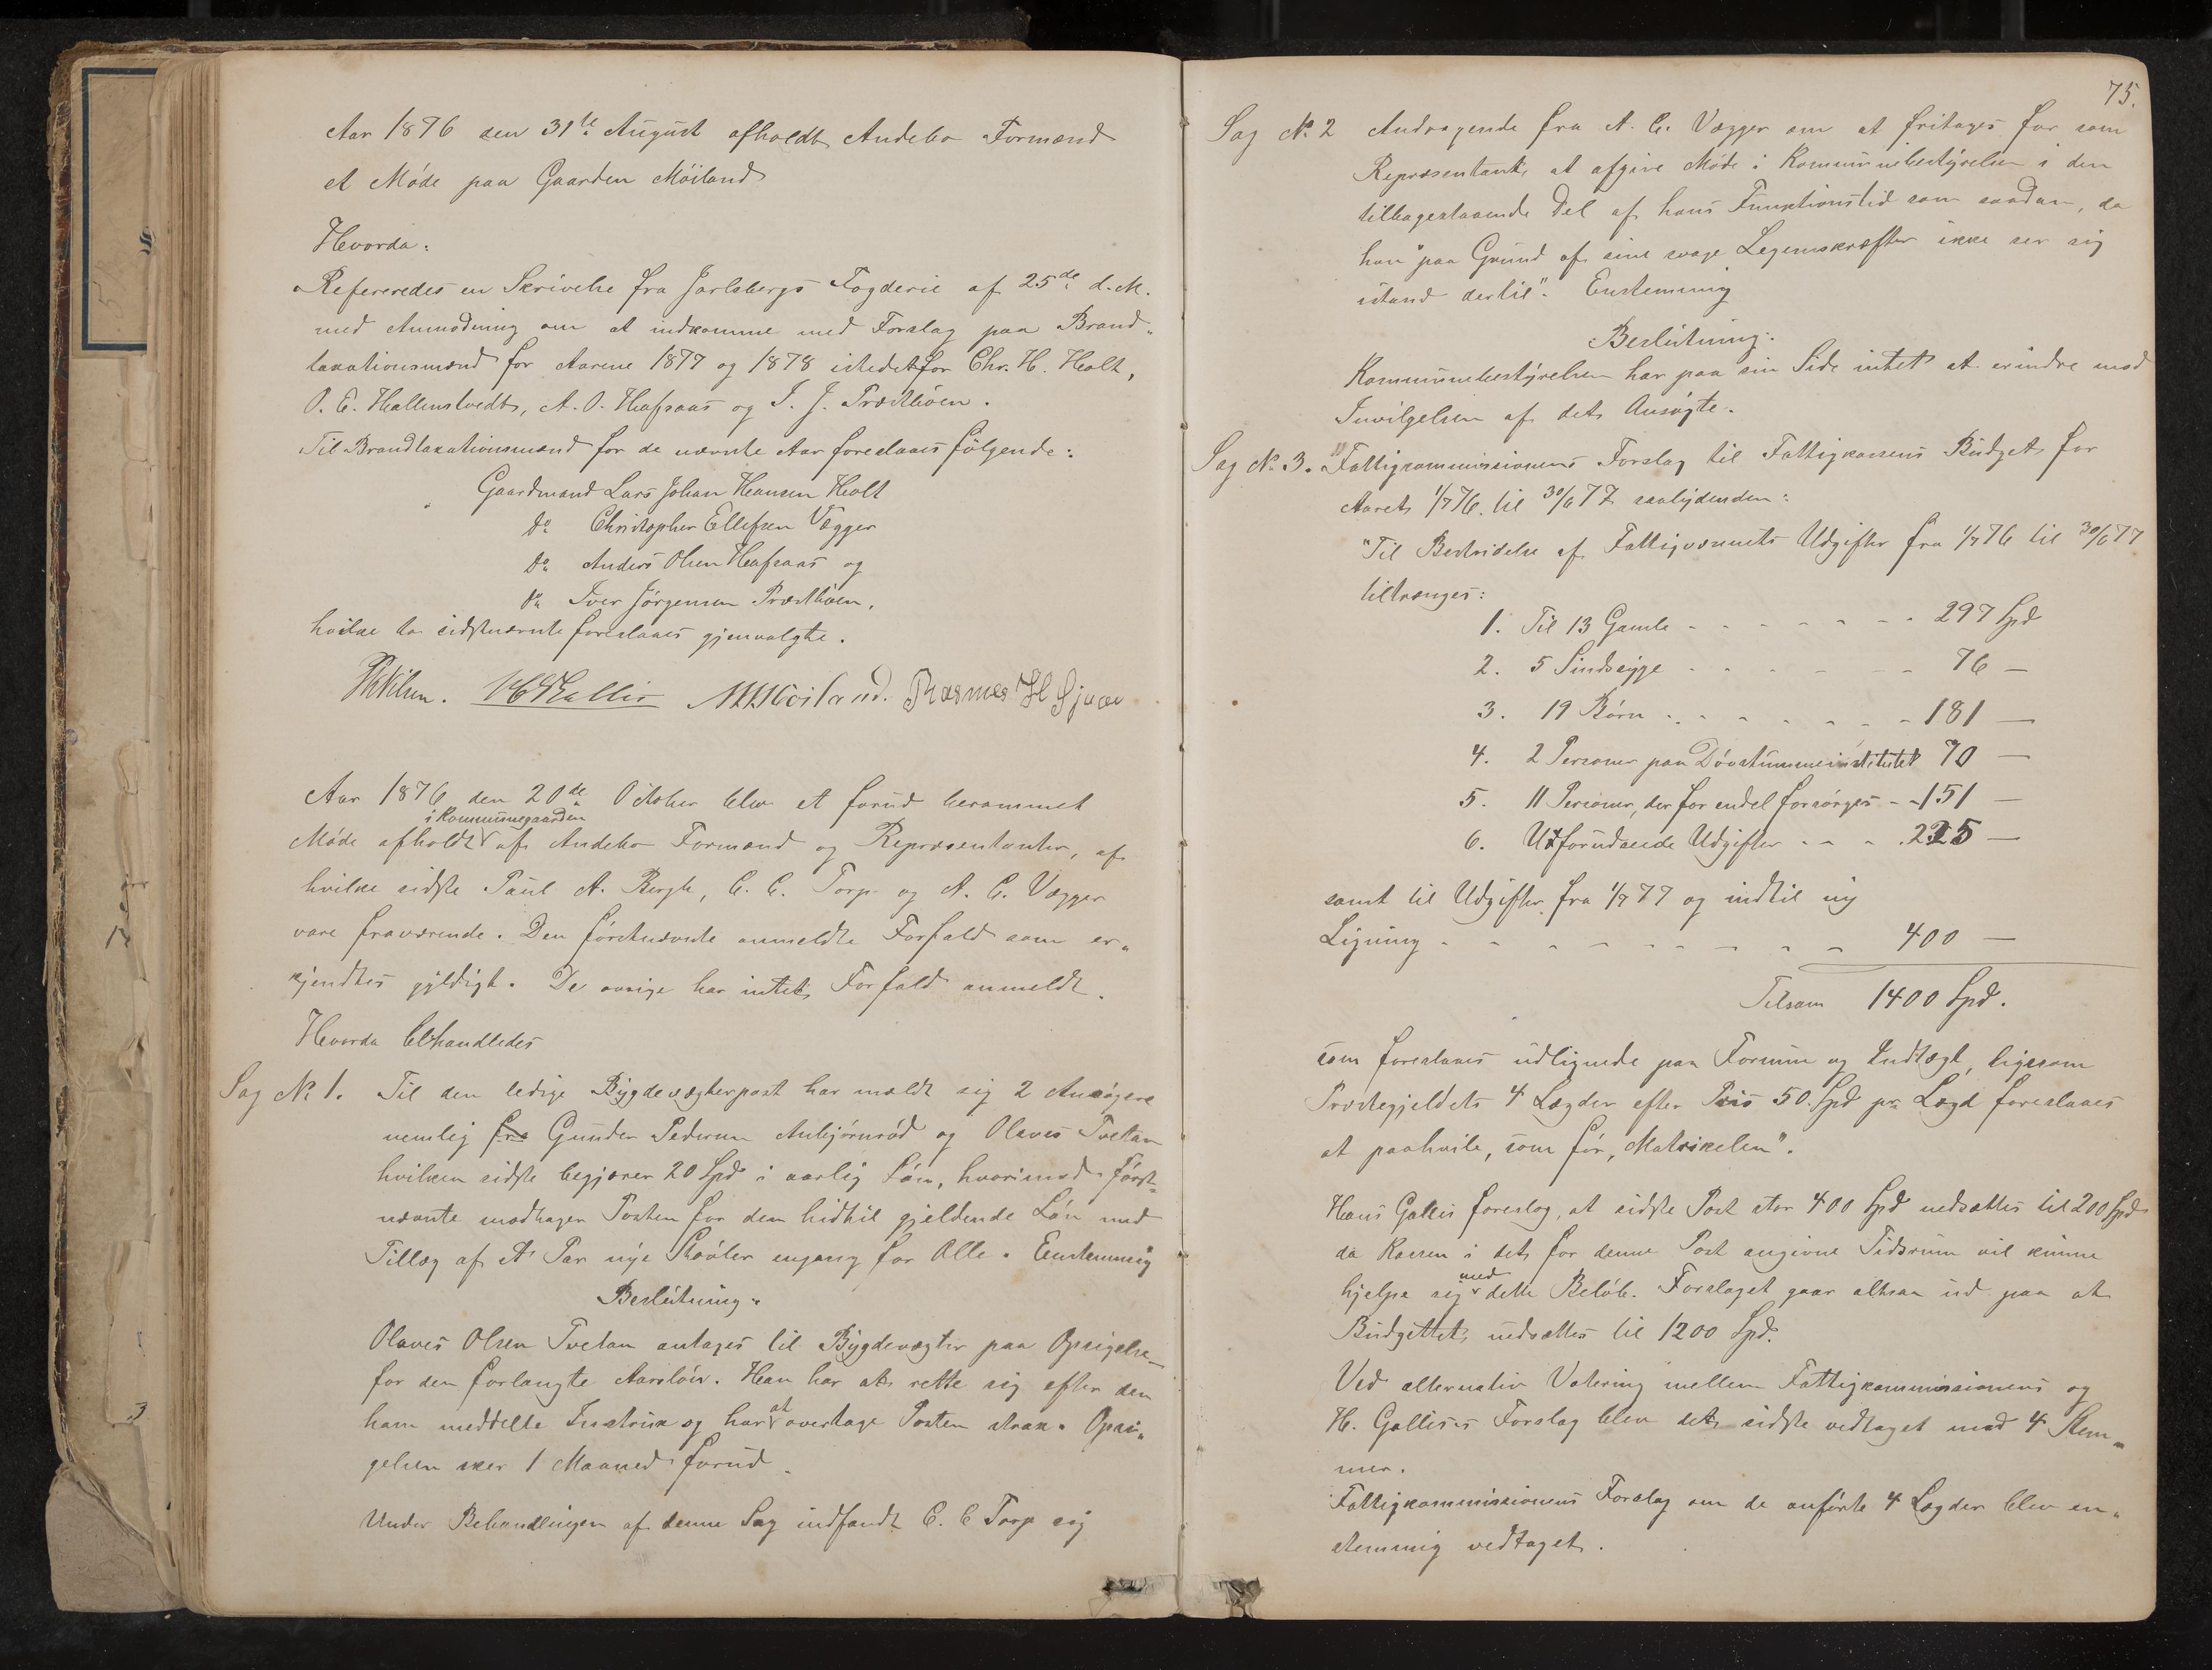 Aar 1876 den 31te August afholdt Andebo Formænd
et Møde paa Gaarden Møiland
Hvorda:
Refereredes en Skrivelse fra Jarlsbergs Fogderie af 25de d. M.
med Anmodning om at indkomme med Forslag paa Brand-
taxationsmænd for Aarene 1877 og 1878 istedetfor Chr. H. Holt,
O. E. Hallenstvedt, A. O. Høfsaas og I. J. Præsthöen.
Til Brandtaxationsmænd for de nævnte Aar foreslaaes fölgende:
Gaardmand Lars Johan Hansen Holt
Do Christopher Ellefsen Vegger
Do Anders Olsen Høfsaas og
Do Iver Jörgensen Præsthöen,
hvilke to sidstnævnte foreslaaes gjenvalgte.
HGallis Rasmus H Gjein
Aar 1876 den 20de October blev et forud berammet
i Kommunegaarden
Möde afholdt af Andebo Formænd og Repræsentanter, af
hvilke sidste Paul A. Bergh, C. C. Torp og A. C. Vegger
vare fraværende. Den förstnævnte anmeldte Forfald som er-
kjendtes gyldigt. De øvrige har intet Forfald anmeldt.
Hvorda behandledes
Sag No 1. Til den ledige Bygdevægterpost har meldt sig 2 Ansögere
nemlig fra Gunder Pedersen Anbjörnröd og Olaves Tvetan
hvilken sidste begjærer 20 Spd i aarlig Lön, hvorimod först-
nævnte modtager Posten for den hidtil gjeldende Lön med
Tillæg af et Par nye Stövler engang for Alle. Eenstemmig
Beslutning.
Olaves Olsen Tvetan antages til Bygdevægter paa Opsigelse
for den forlangte Aarslön. Han har at rette sig efter den
ham meddelte Instrux og har at overtage Posten strax. Opsi-
gelsen sker 1 Maaned forud.
Under Behandlingen af denne Sag indfandt C. C Torp sig
75.
Sag No 2 Andragende fra A. C. Vegger om at fritages for som
Repræsentant at afgive Möde i Kommunebestyrelsen i den
tilbagestaaende Del af hans Funktionstid som saadan, da
han "paa Grund af sine svage Legemskræfter ikke ser sig
istand dertil". Enstemmig
Beslutning:
Kommunebestyrelsen har paa sin Side intet at erindre mod
Invilgelsen af det Ansögte.
Sag No 3. Fattigcommissionens Forslag til Fattigkassens Budget for
Aaret 1/7 76 til 30/6 77 saalydende:
"Til Bestridelse af Fattigvæsenets Udgifter fra 1/7 76 til 30/6 77
tiltrænges:
1. Til 13 Gamle - - - - - - - 297 Spd
2. 5 Sindssyge - - - - - - 76 —
3. 19 Börn - - - - - - - 181 —
4. 2 Personer paa Dövstummeinstitutet 70 —
5. 11 Personer, der for endel forsörges - - 151 —
6. Uforudseede Udgifter - - - 225 —
samt til Udgifter fra 1/7 77 og indtil ny
Ligning - - - - - - - - - 400 —
Tilsam 1400 Spd.
som foreslaaes udlignede paa Formue og Indtægt, ligesom
Præstegjeldets 4 Lægder efter Pris 50 Spd pr. Lægd foreslaaes
at paahvile, som för, Matrikelen".
Hans Gallis foreslog, at sidste Post stor 400 Spd nedsættes til 200 Spd
da Kassen i det for denne Post angivne Tidsrum vil kunne
hjelpe sig med dette Belöb. Forslaget gaar altsaa ud paa at
Budgettet nedsættes til 1200 Spd.
Ved alternativ Votering mellem Fattigkommissionens og
H. Gallis's Forslag blev det sidste vedtaget med 4 Stem-
mer.
Fattigkommissionens Forslag om de anförte 4 Lægder blev en-
stemmig vedtaget.